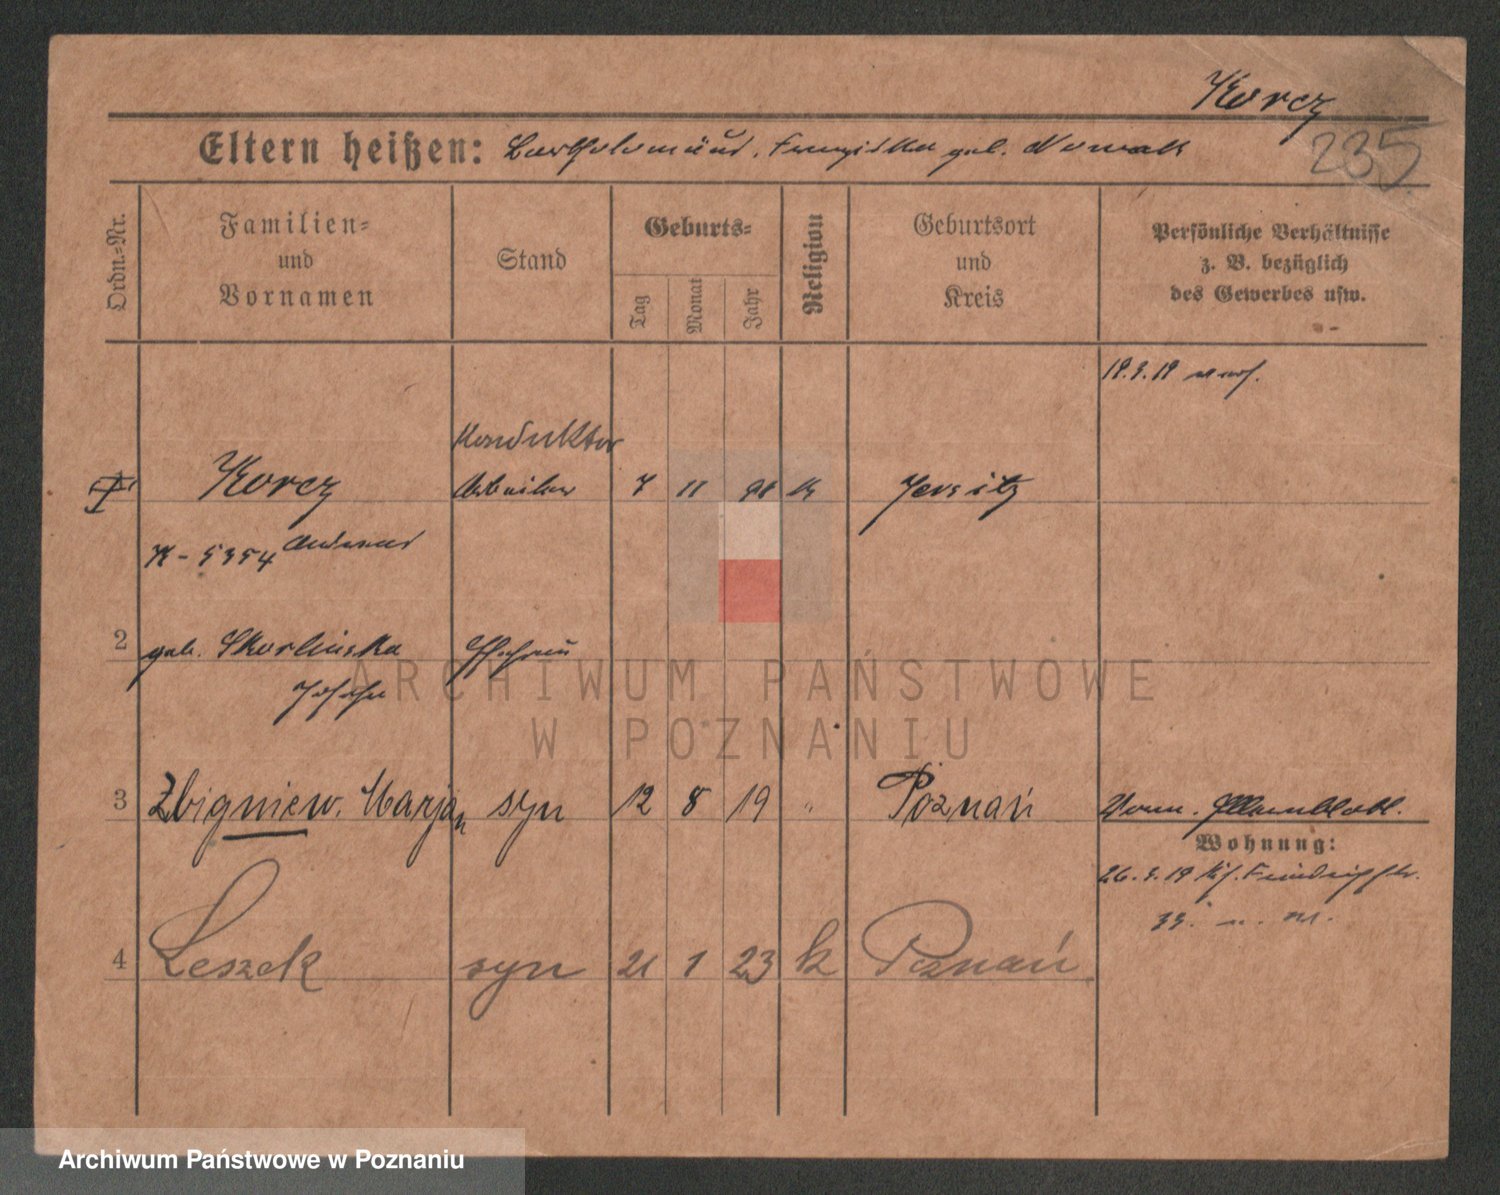 Korcz
235
Eltern heißen: Bartholomäus. Franziska geb. Nowak
Ordn.-Nr.
Familien-
und
Vornamen
Stand
Geburts-
Tag
Monat
Jahr
Religion
Geburtsort
und
Kreis
Persönliche Verhältnisse
z. B. bezüglich
des Gewerbes usw.
Konduktor
Korcz Arbeiter 7 11 k Jersitz
K-5354 Andreas
2 geb. Skorlinska Ehefrau
Josefa
3 Zbigniew. Marjan syn 12 8 19 " Poznań
Wohnung:
33.
4 Leszek syn 21 1 23 k Poznań
ARCHIWUM PAŃSTWOWE
W POZNANIU
Archiwum Państwowe w Poznaniu